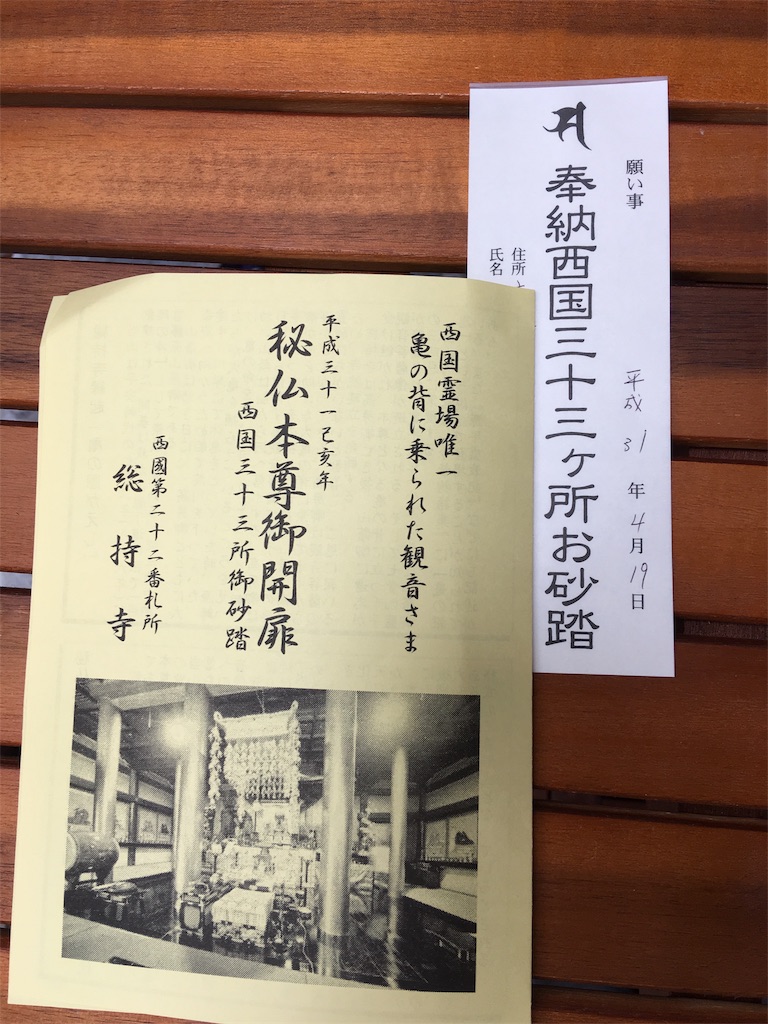 願い事
平成31年4月19日
奉納西国三十三ヶ所お砂踏
住所
氏名
西国霊場唯一
亀の背に乗られた観音さま
平成三十一己亥年
秘仏本尊御開扉
西国三十三所御砂踏
西國第二十二番札所
総持寺